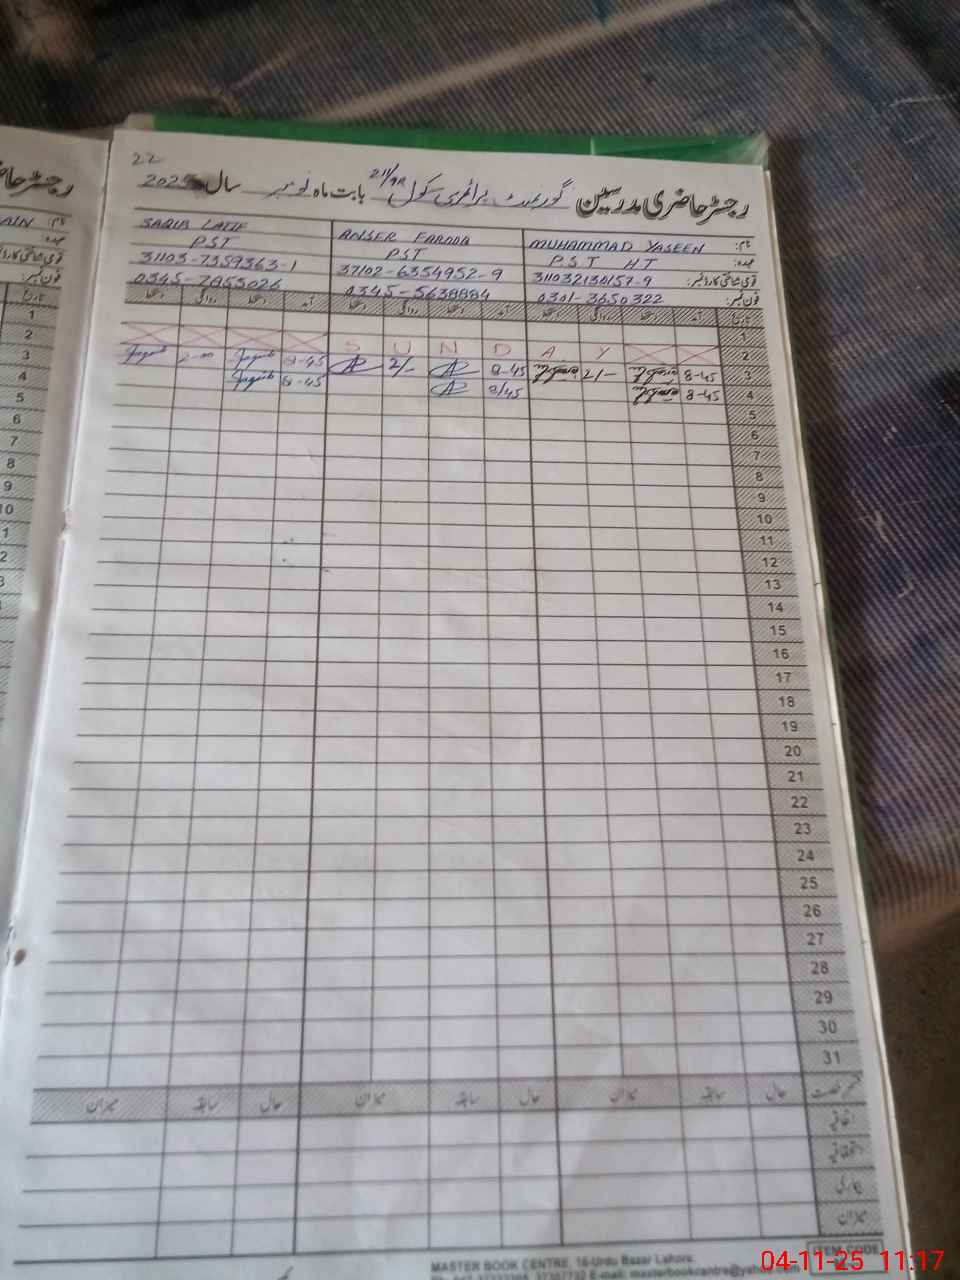 22
رجسٹر حاضری مدرسین گورنمنٹ پرائمری سکول 21/9R بابت ماہ نومبر سال 2025
نام: MUHAMMAD YASEEN ANSER FAROOQ SAQIB LATIF
عہدہ: P.S.T HT PST PST
قومی شناختی کارڈ نمبر: 311032130157-9 37102-6354952-9 31103-7359363-1
فون نمبر: 0301-3650322 0345-5638884 0345-7855026
تاریخ آمد دستخط روانگی دستخط آمد دستخط روانگی دستخط آمد دستخط روانگی دستخط
1
2 S U N D A Y
3 8-45 2/- 8-45 2/- 8-45 2-00
4 8-45 8/45 8-45
5
6
7
8
9
10
11
12
13
14
15
16
17
18
19
20
21
22
23
24
25
26
27
28
29
30
31
قسم رخصت حال سابقہ میزان حال سابقہ میزان حال سابقہ میزان
اتفاقیہ
استحقاقیہ
بیماری
میزان
ITEM CODE
MASTER BOOK CENTRE, 16-Urdu Bazar Lahore.
E-mail: masterbookcentre@yahoo.com
04-11-25 11:17